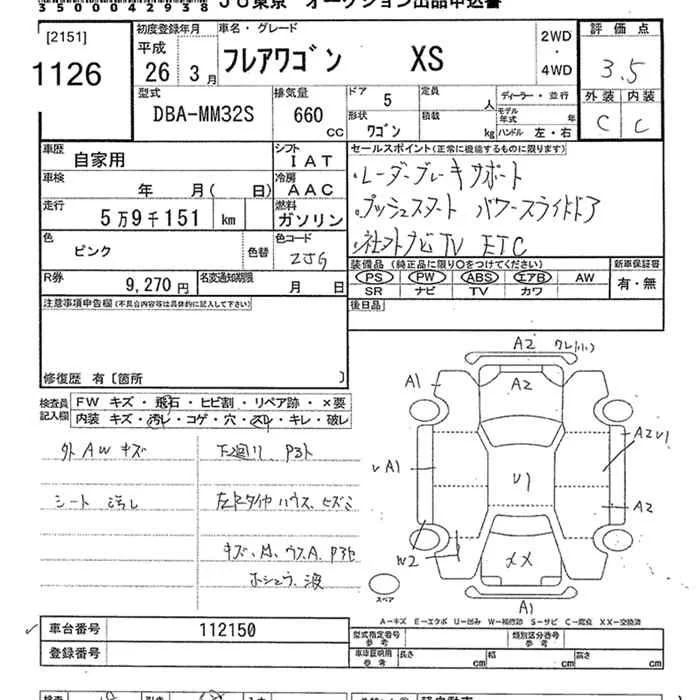 35000429
JU東京 オークション出品申込書
[2151]
1126
初度登録年月
平成
26 3月
車名・グレード
フレアワゴン XS
2WD
・
4WD
評価点
3.5
外装 内装
C C
型式
DBA-MM32S
排気量
660
CC
ドア 5
形状 ワゴン
定員 人
積載 kg
ディーラー・並行
モデル年式 年
ハンドル 左・右
車歴
自家用
シフト
IAT
車検
年 月( 日)
冷房
AAC
走行
5万9千151 km
燃料
ガソリン
色
ピンク
色替
色コード
ZJG
R券
9,270円
名変通知期限
月 日
セールスポイント(正常に機能するものに限ります)
・レーダーブレーキサポート
・プッシュスタート パワースライドドア
・社外ナビTV ETC
装備品(純正品に限り○をつけてください)
PS PW ABS エアB AW
SR ナビ TV カワ
新車保証書
有・無
後日品
注意事項申告欄(不具合内容等は具体的に記入して下さい)
修復歴 有〔箇所 〕
検査員記入欄
FW キズ・飛石・ヒビ割・リペア跡・×要
内装 キズ・汚レ・コゲ・穴・スレ・キレ・破レ
外AWキズ
下廻り、
シート 汚レ
A2
A2
A1
A2 U1
A1
U1
A2
W2
XX
A1
スペア
A－キズ E－エクボ U－凹み W－補修跡 S－サビ C－腐食 XX－交換済
車台番号 112150
登録番号
型式指定番号
参考
類別区分番号
参考
車庫証明用
参考
長さ cm 幅 cm 高さ cm